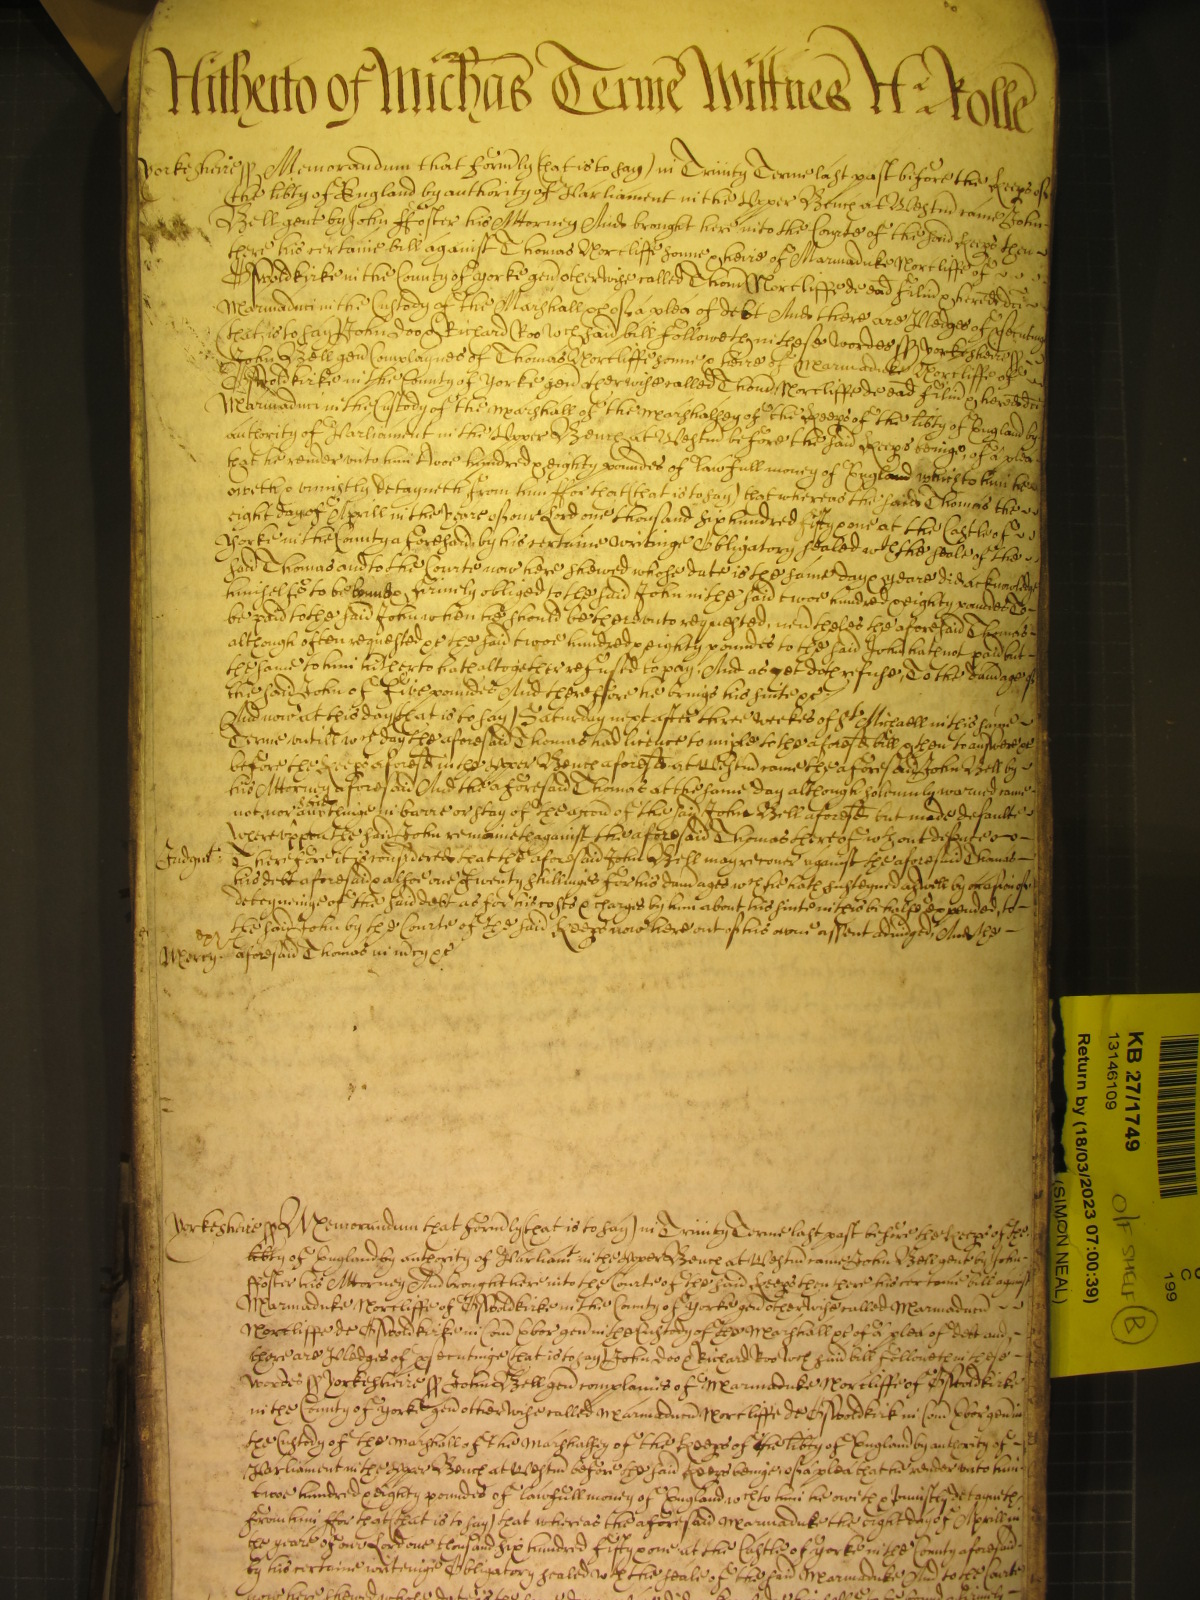 Hitherto of Michās Terme Wittnes Hr: Rolle
Yorkeshire ss Memorandum that formly (that is to say) in Trinity Terme last past before the Keeps of
the libty of England by authority of Parliament in the Upper Bench at Westm came John
Bell gent by John Ffoster his Attorney And brought here into the Courte of the said Keeps then
there his certaine bill against Thomas Norcliffe sonne & heire of Marmaduke Norcliffe of
Oswoldkirke in the County of Yorke gen otherwise called Thom Norcliffe de ead Filiu & hered dci
Marmaduci in the Custody of the Marshall &c of a plea of debt And there are Pledges of psecuting
that is to say John doo & Richard Roo wch said bill followeth in these wordes ss Yorkeshire ss
John Bell gen Complaynes of Thomas Norcliffe sonne & heire of Marmaduke Norcliffe of
Oswoldkirke in the County of Yorke gen otherwise called Thom Norcliffe de ead Filiu & hered dci
Marmaduci in the Custody of the Marshall of the Marshallsey of the Keeps of the libty of England by
authority of Parliament in the Upper Bench at Westm before the said Keeps being, of a plea
that he render unto him twoe hundred & eighty poundes of lawfull money of England which to him he
oweth & uniustly detayneth from him ffor that (that is to say) that whereas the said Thomas the
eight day of Aprill in the yeare of our Lord one thousand six hundred fifty one at the Castle of
Yorke in the County aforesaid by his certaine writinge Obligatory sealed wth the seale of the
said Thomas and to the Courte now here shewed whose date is the same day & yeare did acknowledge
himselfe to be bound & firmely obliged to the said John in the said twoe hundred & eighty poundes To
be paid to the said John when he should be thereunto requested, neutheles the aforesaid Thomas
although often requested &c the said twoe hundred & eighty poundes to the said John hath not paid but
the same to him hitherto hath altogether refused to pay, And as yet doth refuse, To the damage of
the said John of Five poundes And therefore he brings his suite &c
And now at this day (that is to say) Saturday next after three weekes of St Michaell in this same
Terme untill wch day the aforesaid Thomas had licence to imple to the aforesd bill & then to answere &c
before the Keeps aforesd in the Upper Bench aforesd at Westm came the aforesaid John Bell by
his Attorney aforesaid And the aforesaid Thomas at the same day although solemnly warned came
not nor anythinge in barre or stay of the accon of the said John Bell aforesd but made defaulte
Whereuppon the said John remaineth against the aforesaid Thomas thereof wthout defence
Judgmt: Therefore it is considered that the aforesaid John Bell may recover against the aforesaid Thomas
his debt aforesaid & alsoe one & twenty shillinges for his damages wch he hath susteyned aswell by occasion of
deteyninge of the said debt as for his costs & charges by him about his suite in this behalfe expended, to
the said John by the Courte of the said Keeps now here out of his owne assent adiudged, And the
Mercy aforesaid Thomas in mcy &c
Yorkeshire ss Memorandum that formly (that is to say) in Trinity Terme last past before the Keeps of the
libty of England by authority of Parliamt in the Upper Bench at Westm came John Bell gent by John
Ffoster his Attorney And brought here into the Courte of the said Keeps then there his certaine bill against
Marmaduke Norcliffe of Oswoldkirke in the County of Yorke gen otherwise called Marmaducu
Norcliffe de Oswoldkirke in Com Ebor gen in the Custody of the Marshall &c of a plea of debt and
there are Pledges of psecutinge that is to say John doo & Richard Roo wch said bill followeth in these
wordes ss Yorkeshire ss John Bell gen complaines of Marmaduke Norcliffe of Oswoldkirke
in the County of Yorke gen otherwise called Marmaducu Norcliffe de Oswoldkirk in Com Ebor gen in
the Custody of the Marshall of the Marshallsey of the Keeps of the libty of England by authority of
Parliament in the Upper Bench at Westm before the said Keeps beinge, of a plea that he render unto him
twoe hundred & eighty poundes of lawfull money of England wch to him he oweth & iniustly detayneth
from him ffor that (that is to say) that whereas the aforesaid Marmaduke the eight day of Aprill in
the yeare of our Lord one thousand six hundred Fifty one at the Castle of Yorke in the County aforesaid
by his certaine writeinge Obligatory sealed wth the seale of the said Marmaduke And to the Courte
now here shewed whose date is the
KB 27/1749
13146109
Return by (18/03/2023 07:00:39)
(SIMON NEAL)
C
199
B